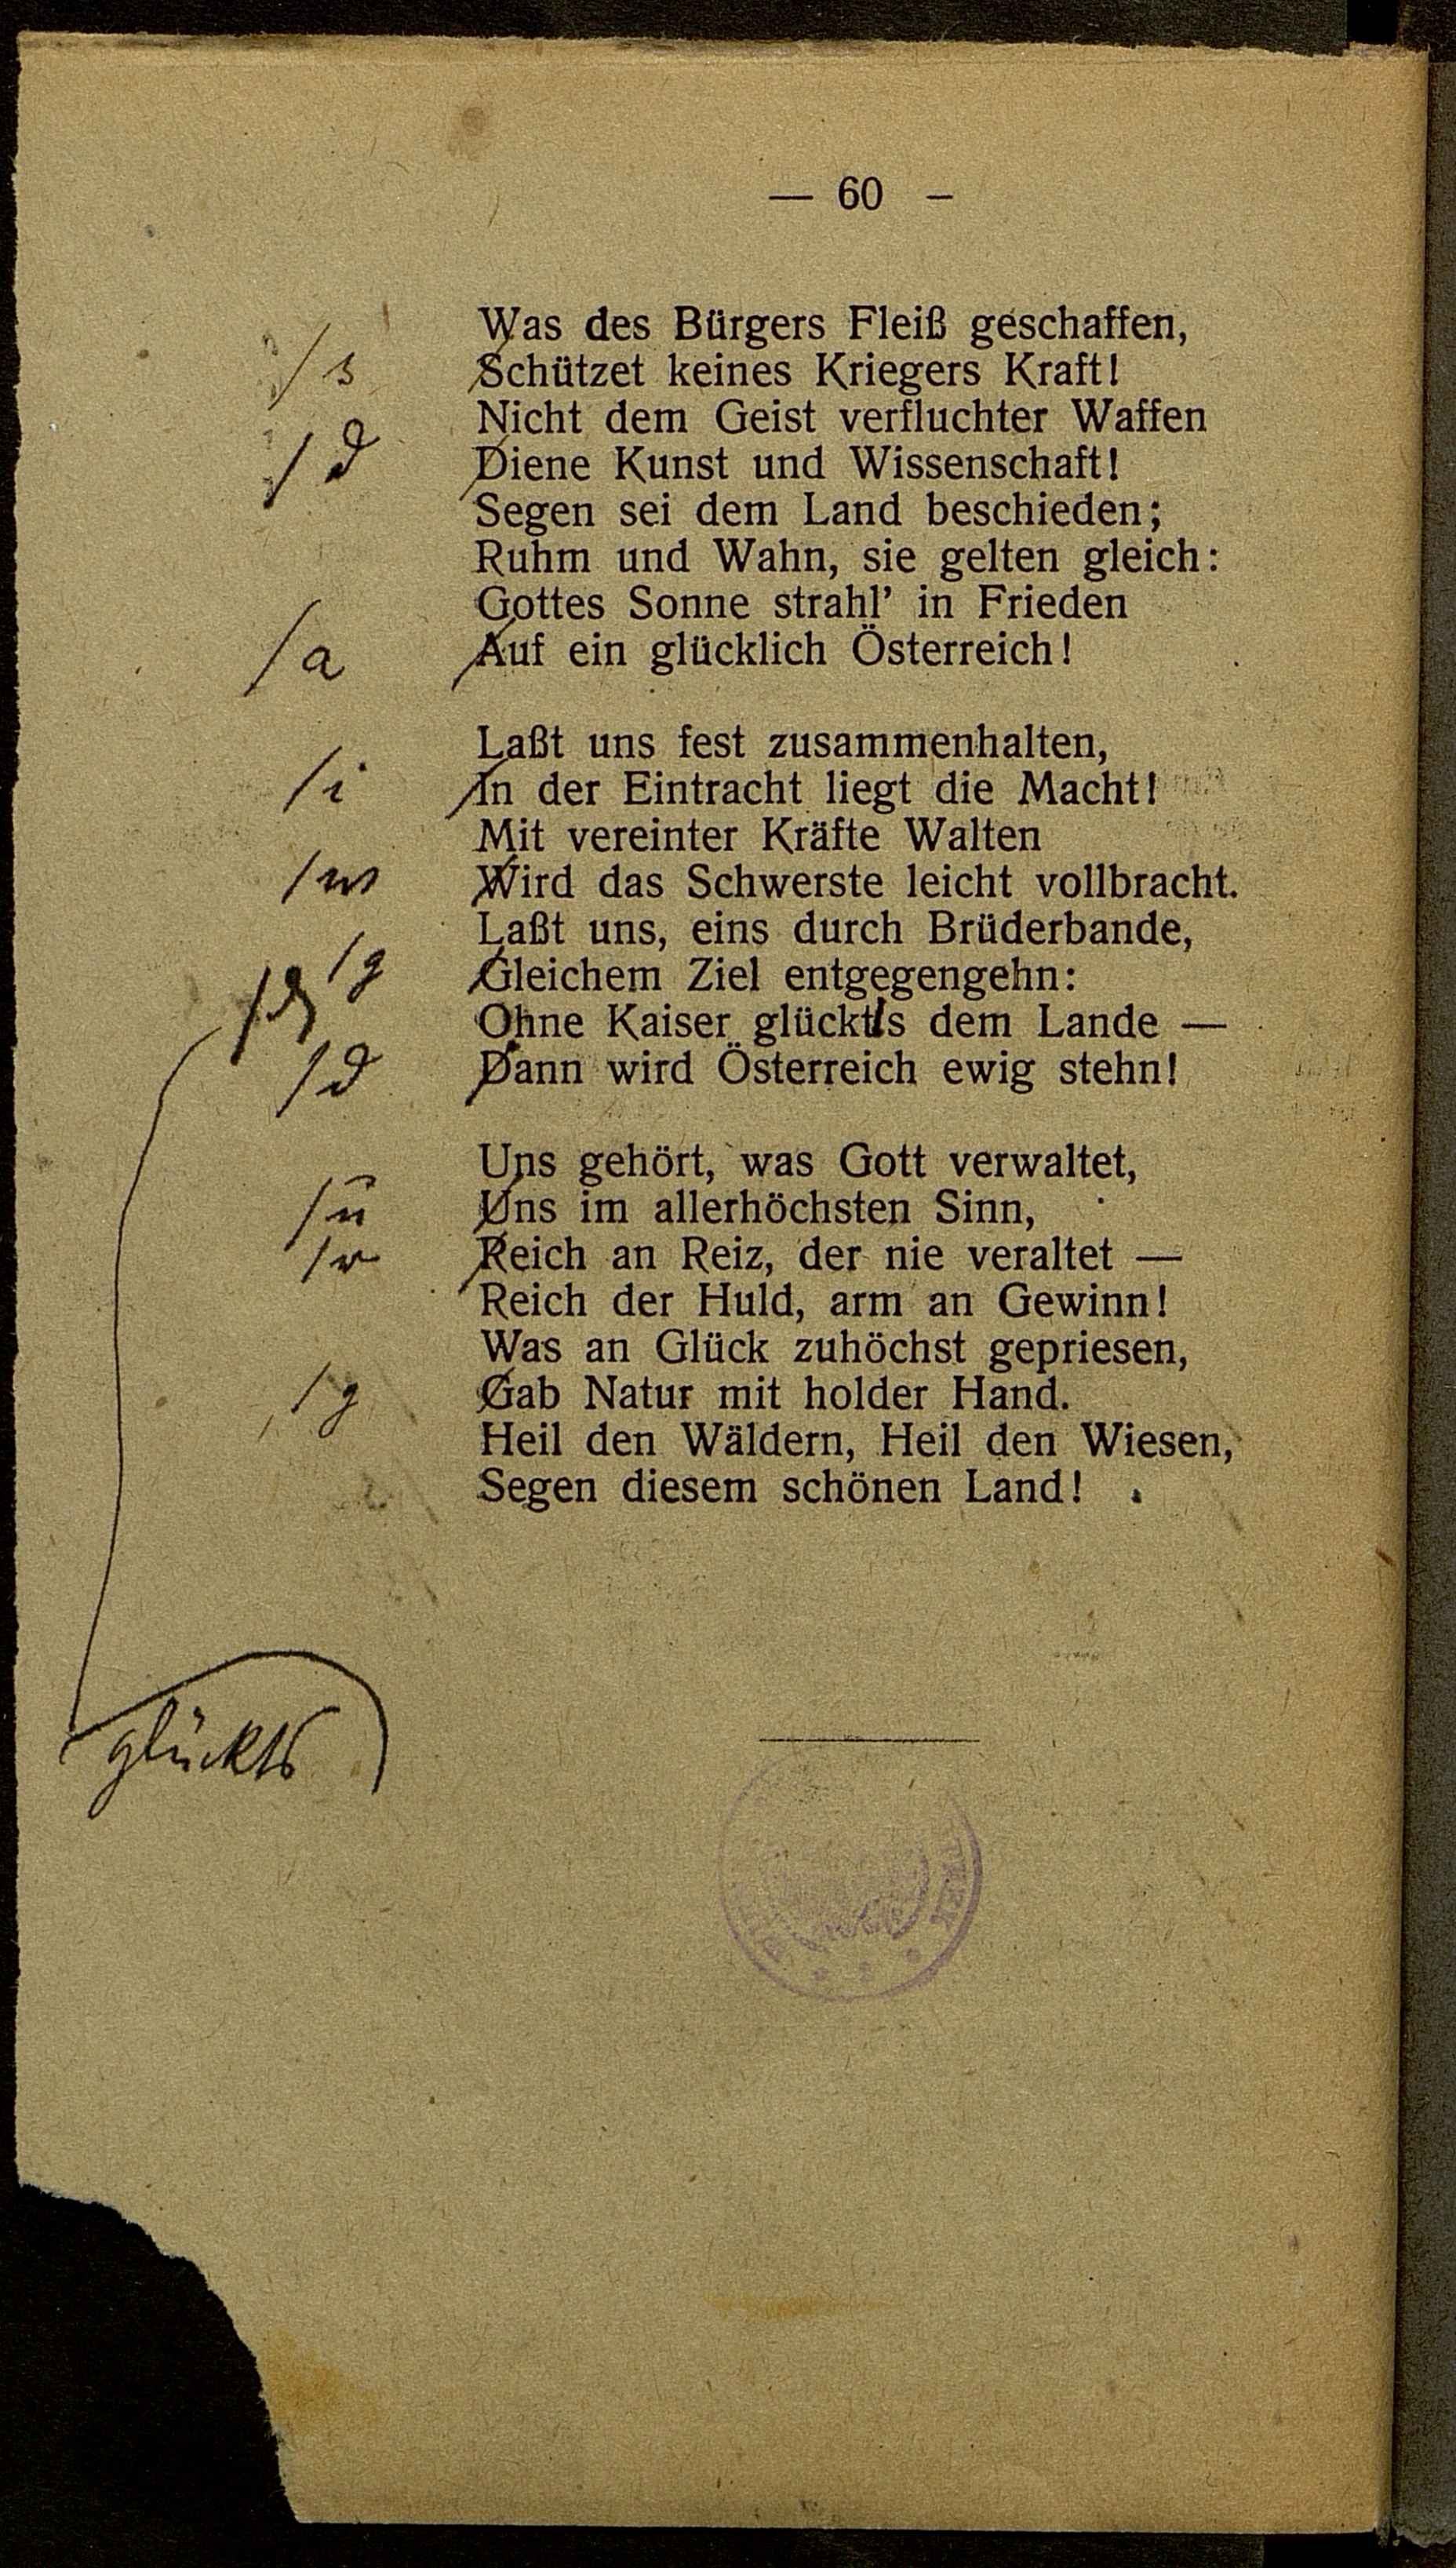 — 60 –
Was des Bürgers Fleiß geschaffen,
/s Schützet keines Kriegers Kraft!
Nicht dem Geist verfluchter Waffen
/d Diene Kunst und Wissenschaft!
Segen sei dem Land beschieden;
Ruhm und Wahn, sie gelten gleich:
Gottes Sonne strahl’ in Frieden
/a Auf ein glücklich Österreich!
Laßt uns fest zusammenhalten,
/i In der Eintracht liegt die Macht!
Mit vereinter Kräfte Walten
/w Wird das Schwerste leicht vollbracht.
Laßt uns, eins durch Brüderbande,
/g Gleichem Ziel entgegengehn:
Ohne Kaiser glückts dem Lande —
/d Dann wird Österreich ewig stehn!
Uns gehört, was Gott verwaltet,
/u Uns im allerhöchsten Sinn,
/r Reich an Reiz, der nie veraltet —
Reich der Huld, arm an Gewinn!
Was an Glück zuhöchst gepriesen,
/g Gab Natur mit holder Hand.
Heil den Wäldern, Heil den Wiesen,
Segen diesem schönen Land!
glückts